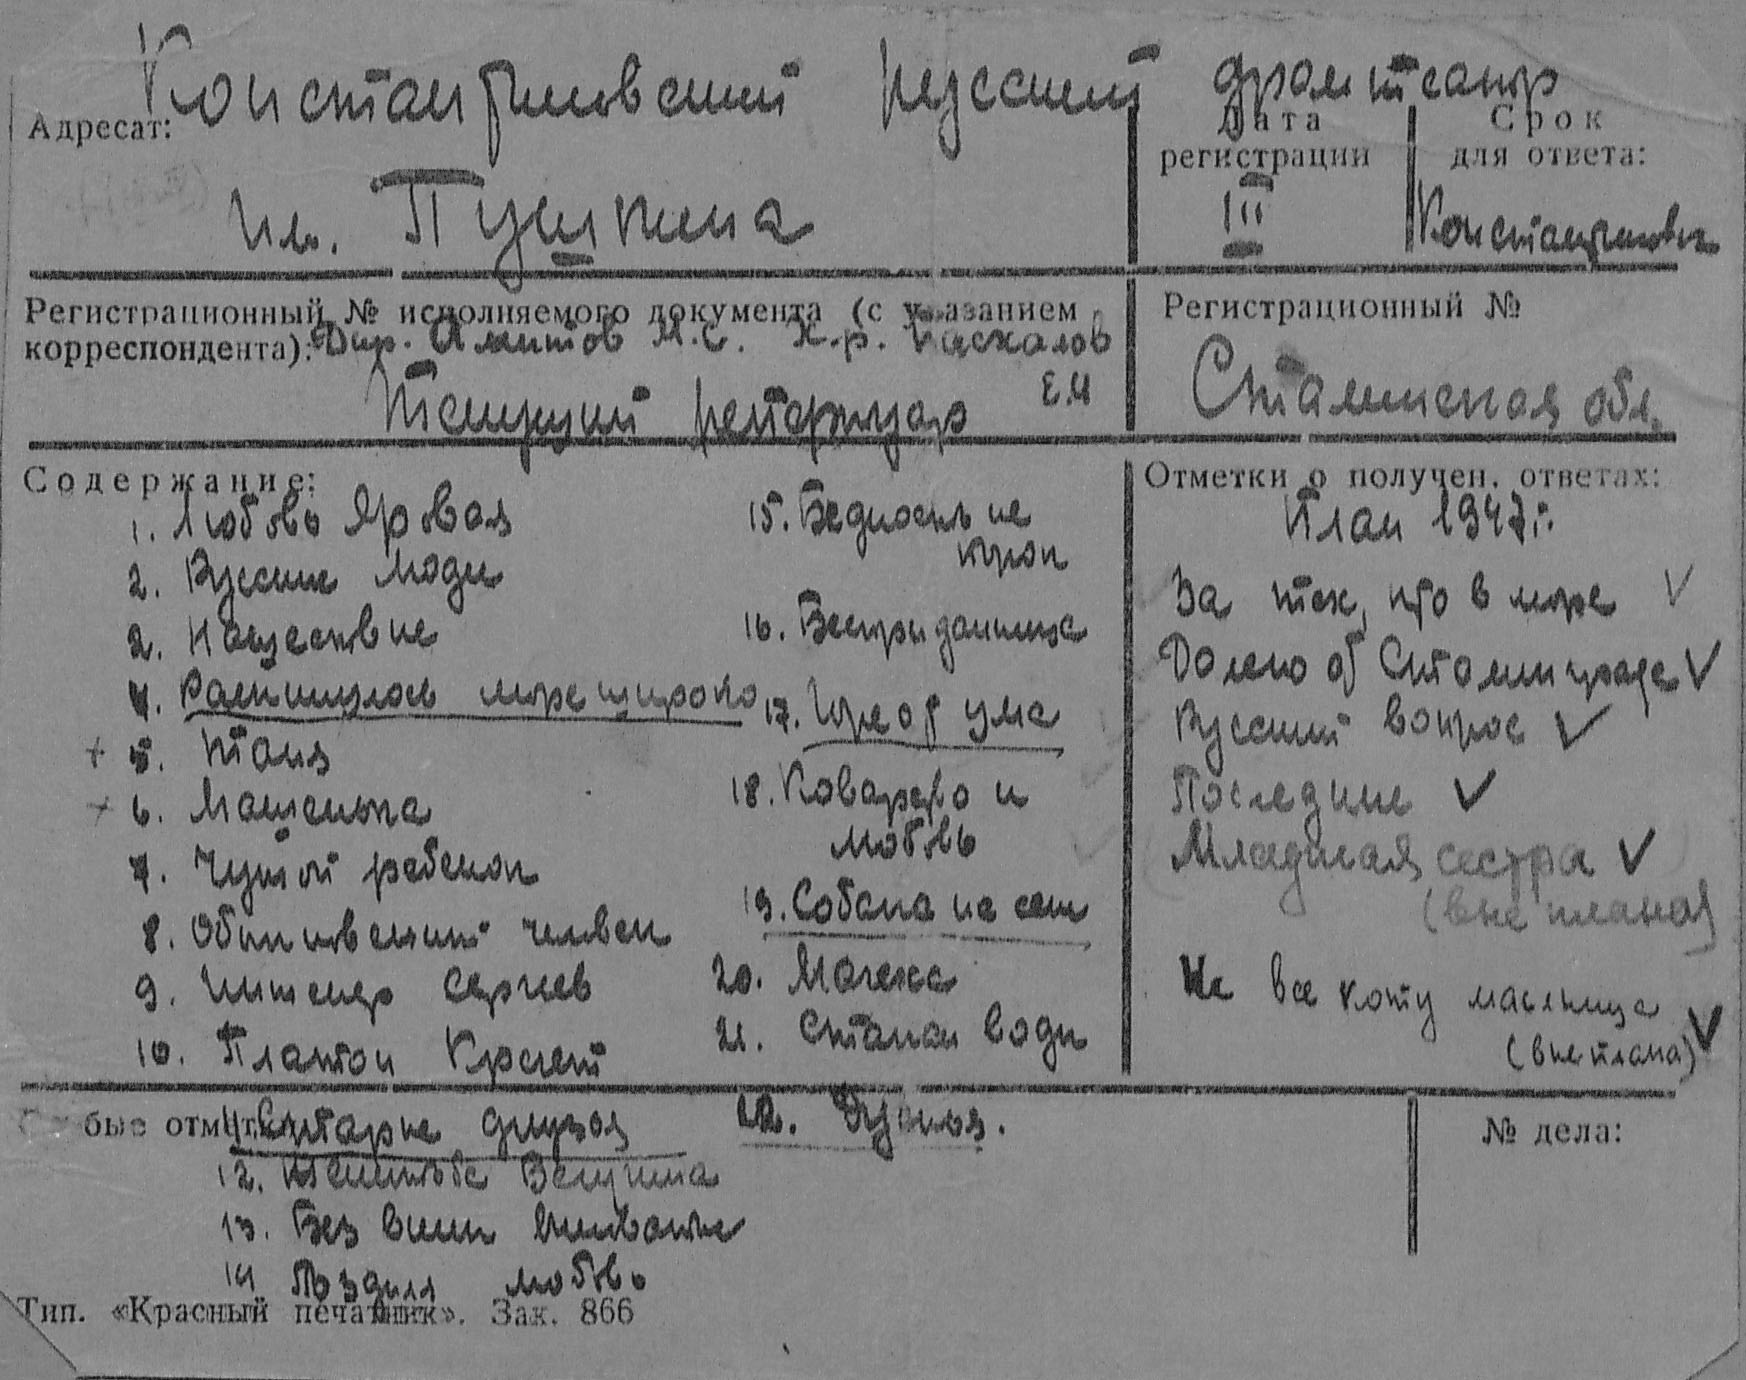 Константиновский русский драмтеатр
Адресат:
Дата
регистрации
Срок
для ответа:
им. Пушкина
III
Константиновка
Регистрационный № исполняемого документа (с указанием
корреспондента):
Дир. Аметов М.С. Х.р. Паскалов
Е.И
Текущий репертуар
Регистрационный №
Сталинская обл.
Содержание:
1. Любовь Яровая
2. Русские люди
2. Нашествие
4. Раскинулось море широко
+ 5. Таня
+ 6. Машенька
7. Чужой ребенок
8. Обыкновенный человек
9. Инженер Сергеев
10. Платон Кречет
15. Бедность не
порок
16. Бесприданница
17. Горе от ума
18. Коварство и
любовь
19. Собака на сене
20. Мачеха
21. Стакан воды
Отметки о получен. ответах:
План 1947 г.
За тех, что в море ✓
Далеко от Сталинграда ✓
Русский вопрос ✓
Последние ✓
Младшая сестра ✓
(вне плана)
Не все коту масленица ✓
(вне плана)
Особые отметки:
11. Старые друзья
12. Женитьба Белугина
13. Без вины виноватые
14 Поздняя любовь
№ дела:
Тип. «Красный печатник». Зак. 866